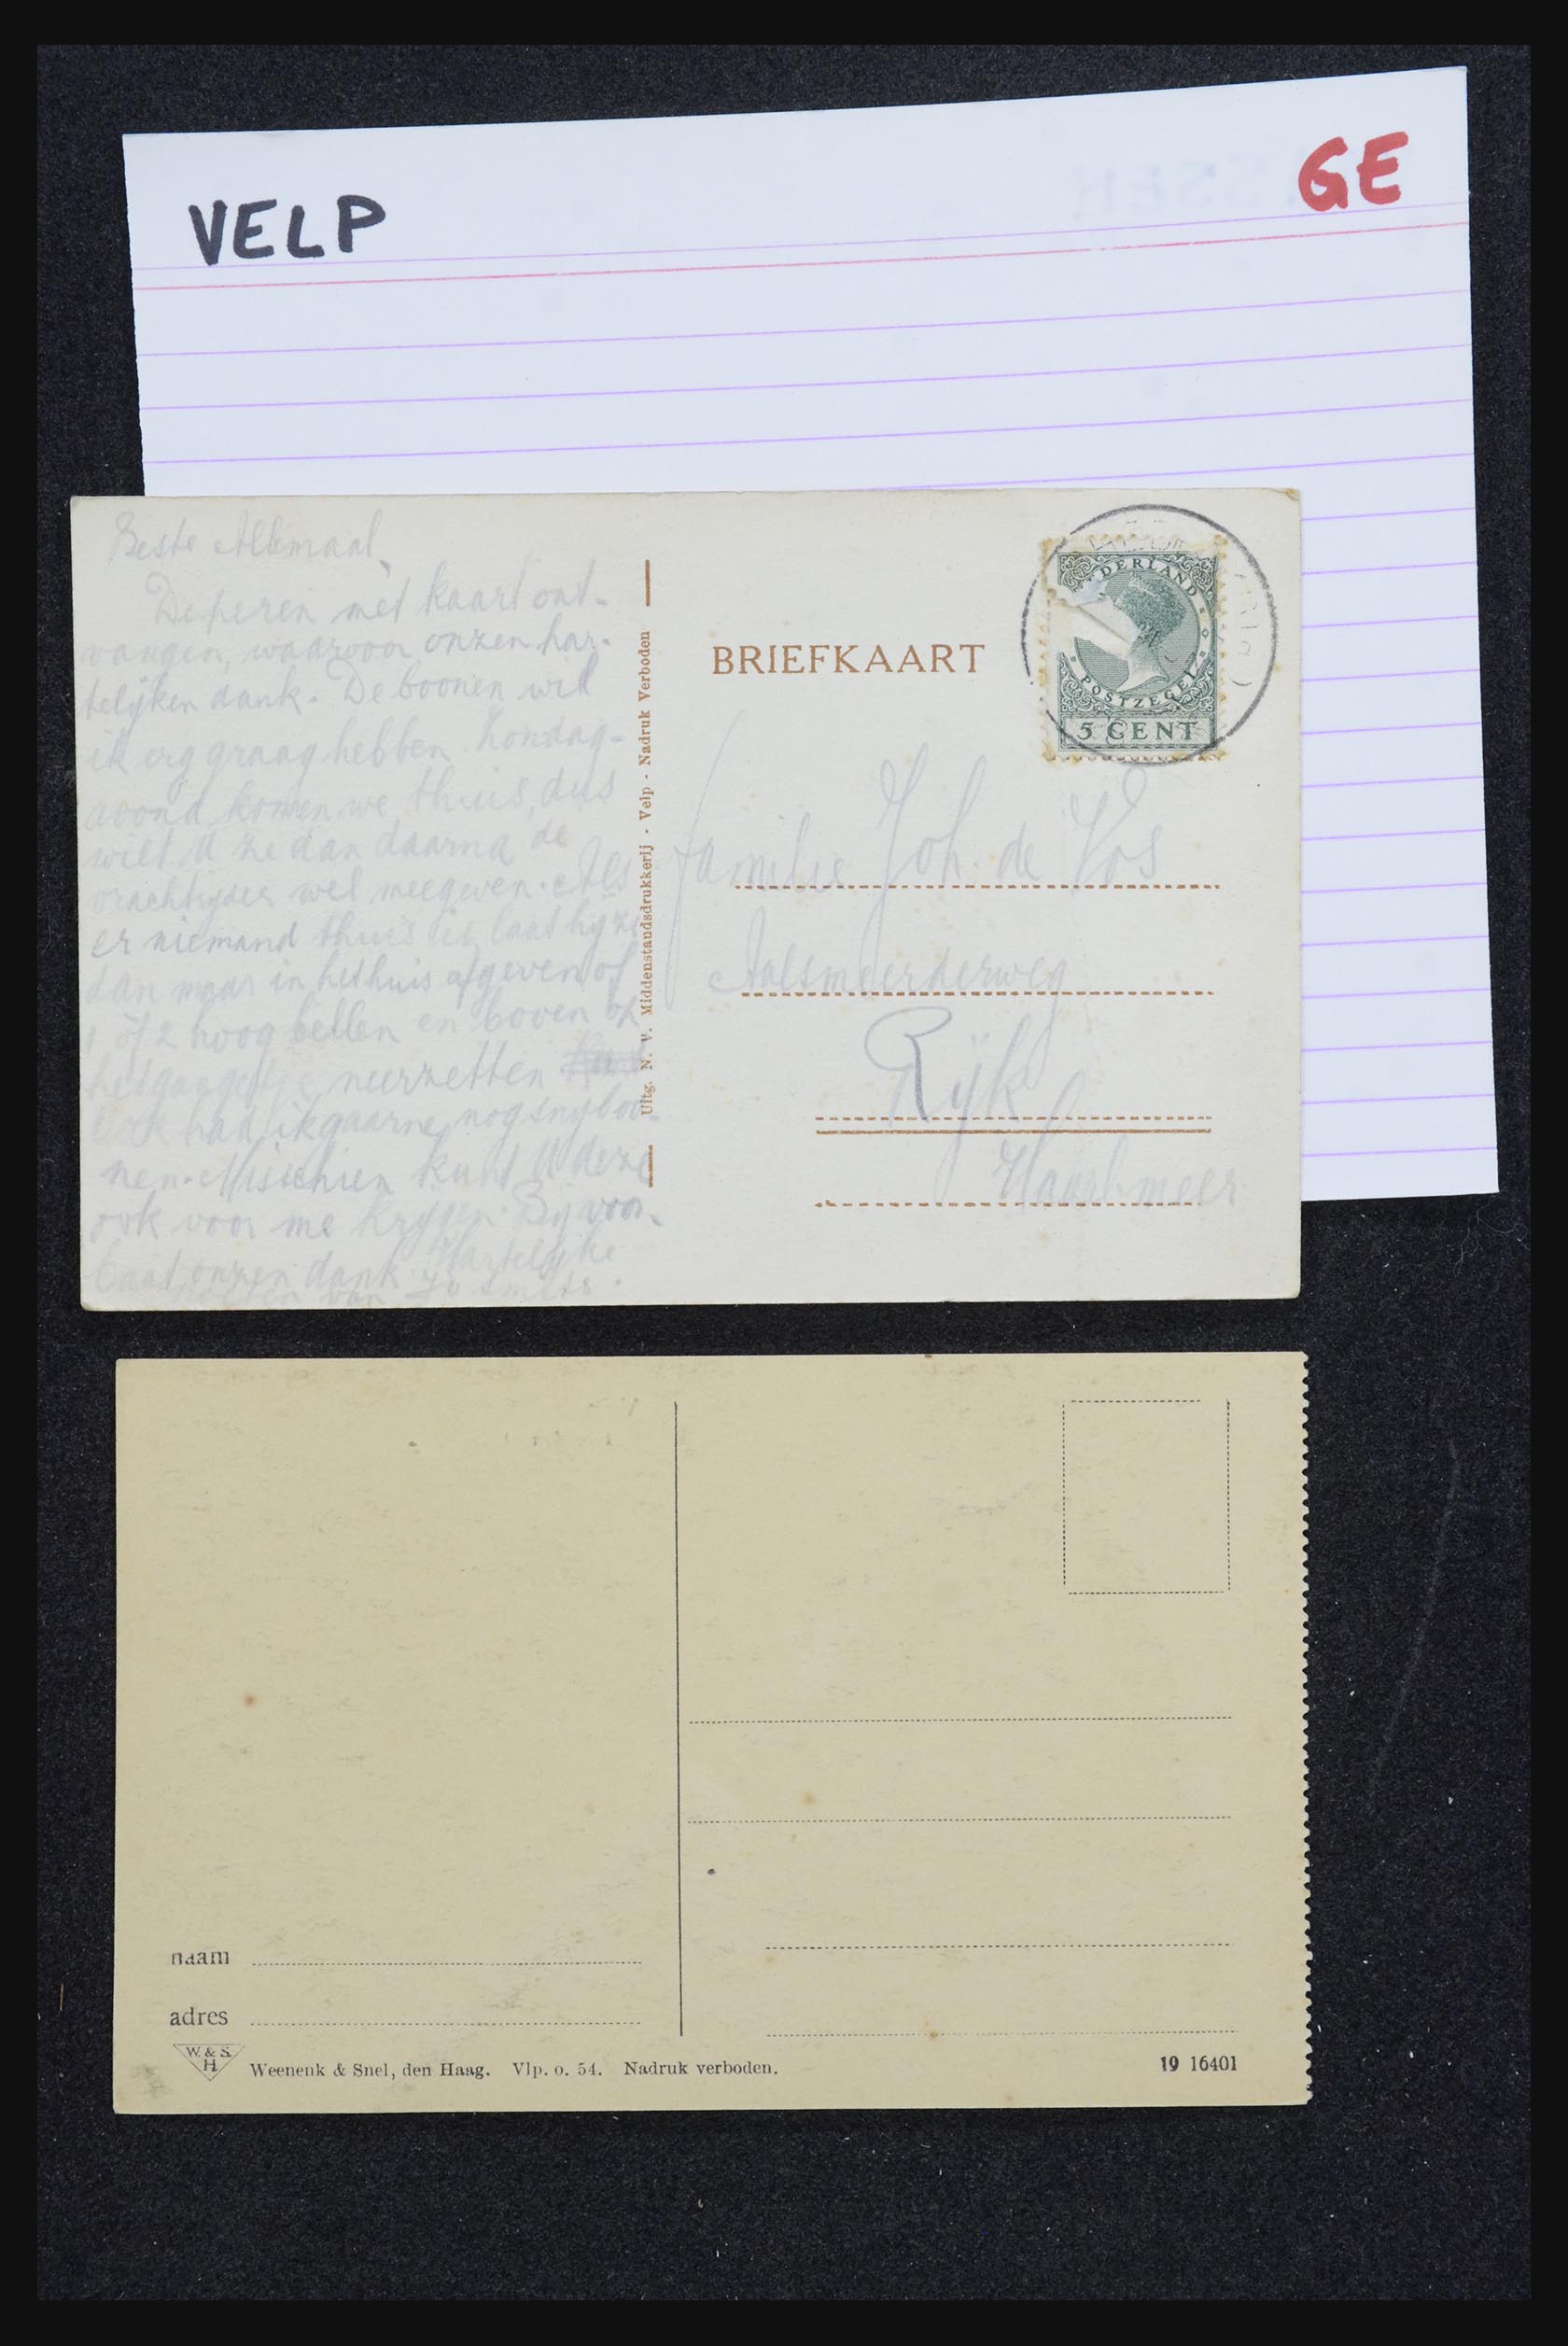 VELP
GE
Beste Allemaal,
De peren met kaart ont-
vangen, waarvoor onzen har-
telijken dank. De boonen wil
ik erg graag hebben. Zondag-
avond komen we thuis, dus
wilt U ze dan daarna de
vrachtrijder wel meegeven. Als
er niemand thuis is laat hij ze
dan maar in het huis afgeven of
1 of 2 hoog bellen en boven op
neerzetten
had ik gaarne nog snyboo-
nen. Misschien kunt U deze
ook voor me krygen. Bij voor-
baat onzen dank. Hartelyke
groeten van
Uitg. N. V. Middenstandsdrukkerij - Velp - Nadruk Verboden
BRIEFKAART
NEDERLAND
POSTZEGEL
5 CENT
Familie Joh. de Vos
Aalsmeerderweg
Rijk
Haarl.meer
naam
adres
W. & S.
H
Weenenk & Snel, den Haag. Vlp. o. 54. Nadruk verboden.
19 16401